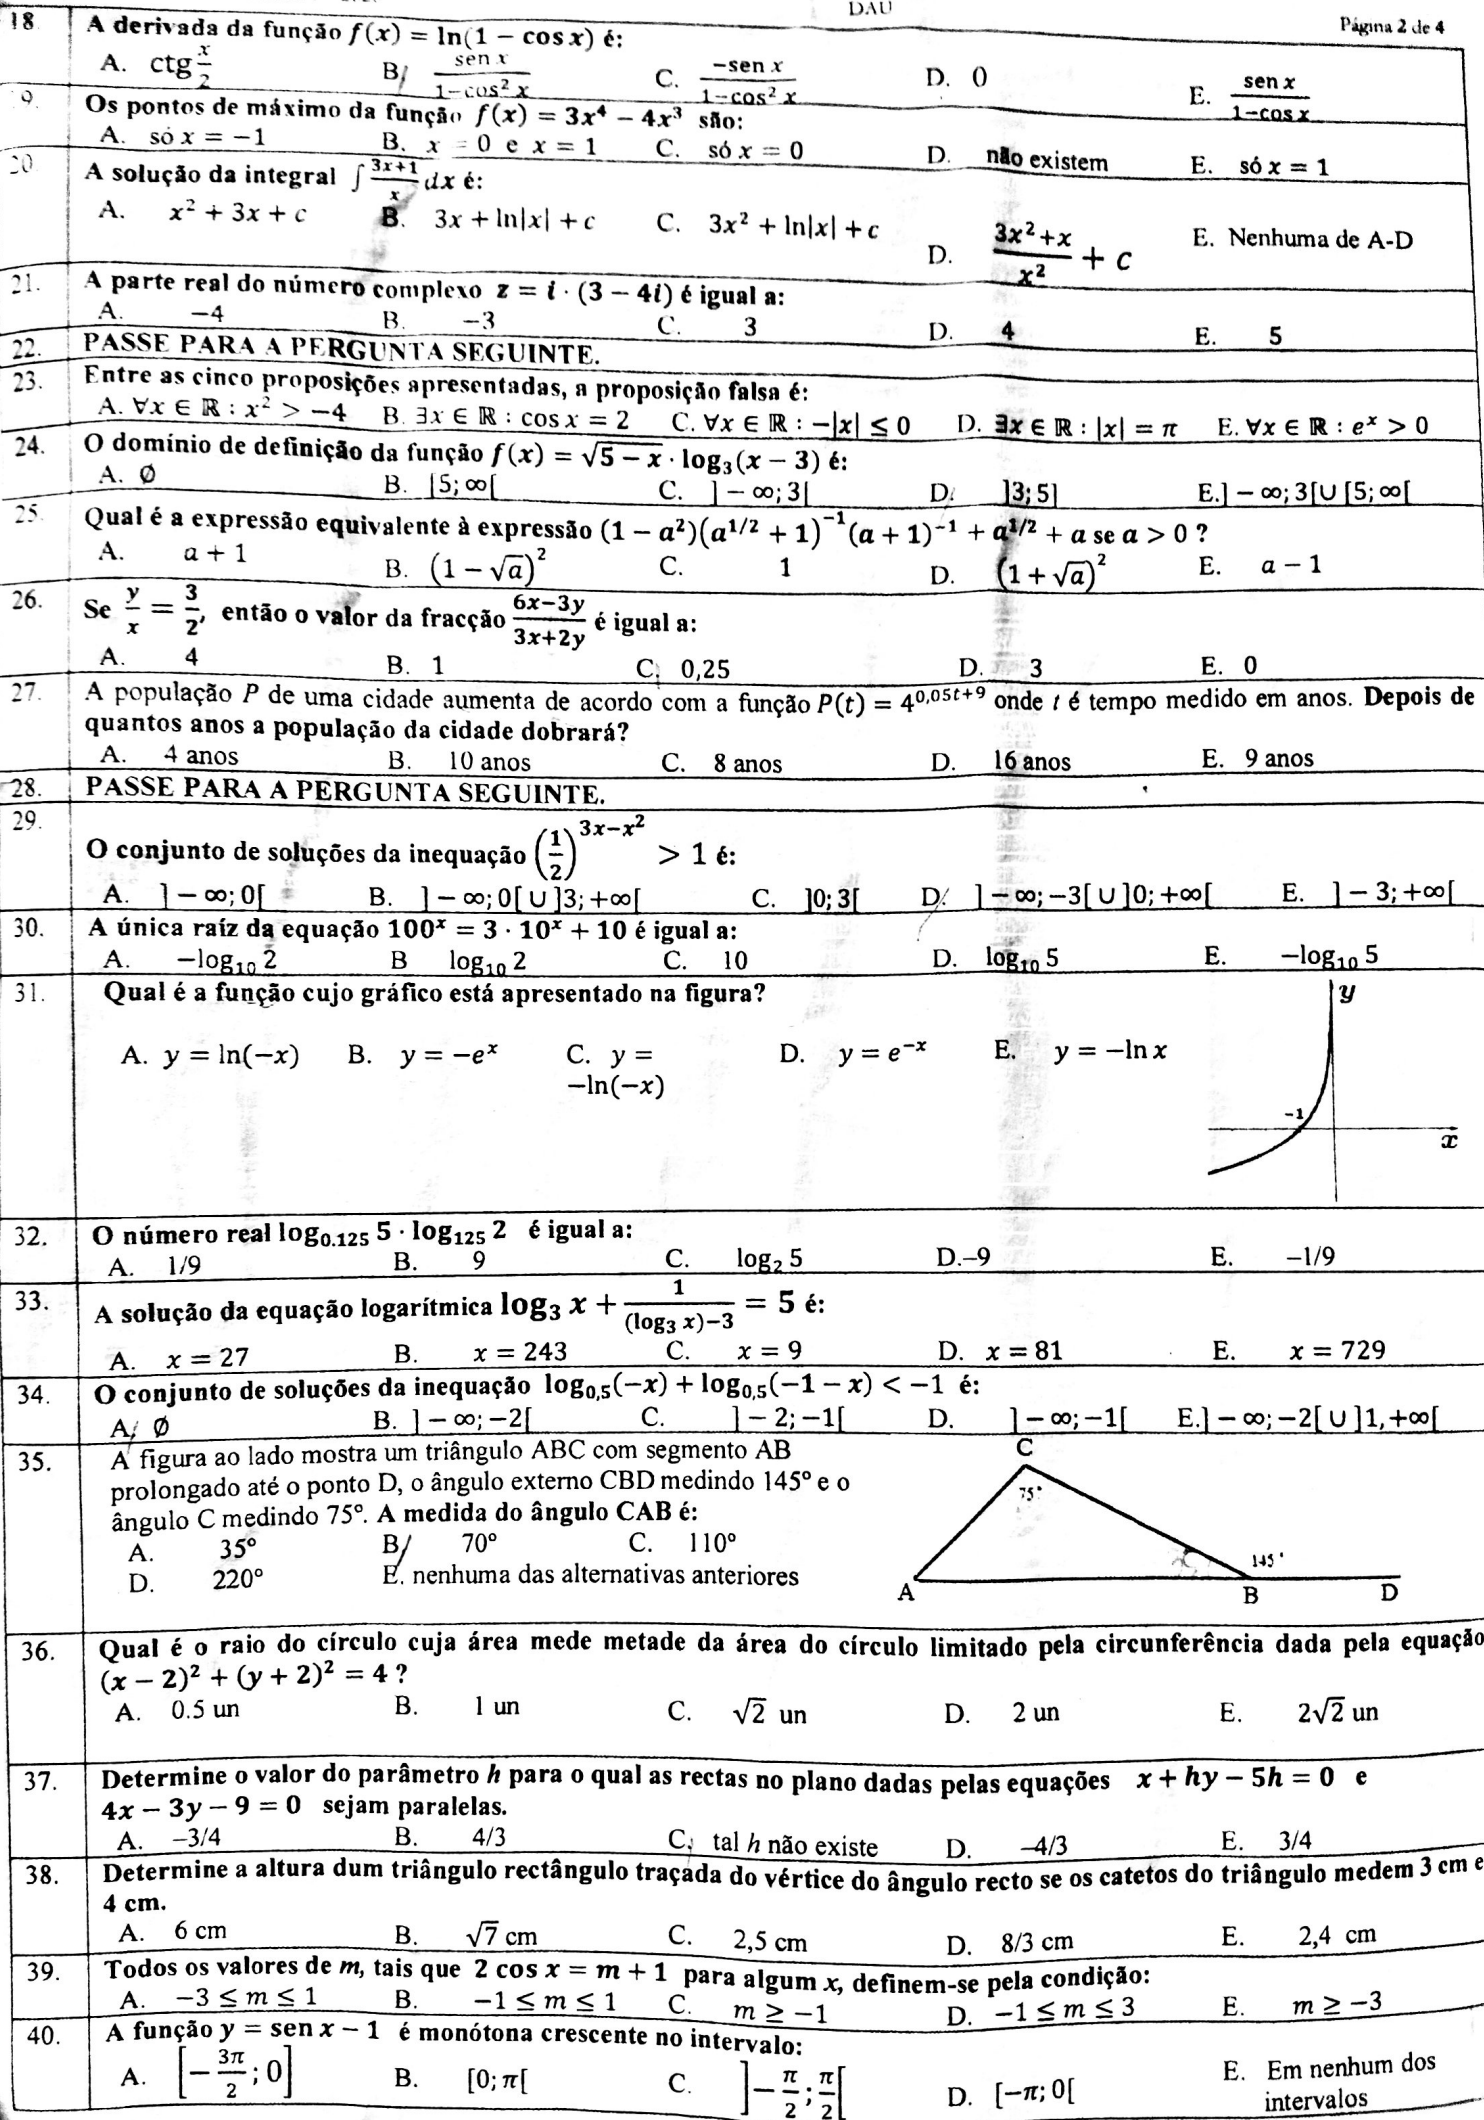 DAU
Página 2 de 4
18 A derivada da função f(x) = ln(1 − cos x) é:
A. ctg x/2 B. sen x/(1−cos² x) C. −sen x/(1−cos² x) D. 0 E. sen x/(1−cos x)
9. Os pontos de máximo da função f(x) = 3x⁴ − 4x³ são:
A. só x = −1 B. x = 0 e x = 1 C. só x = 0 D. não existem E. só x = 1
20 A solução da integral ∫ (3x+1)/x dx é:
A. x² + 3x + c B. 3x + ln|x| + c C. 3x² + ln|x| + c D. (3x²+x)/x² + c E. Nenhuma de A-D
21. A parte real do número complexo z = i · (3 − 4i) é igual a:
A. −4 B. −3 C. 3 D. 4 E. 5
22. PASSE PARA A PERGUNTA SEGUINTE.
23. Entre as cinco proposições apresentadas, a proposição falsa é:
A. ∀x ∈ ℝ : x² > −4 B. ∃x ∈ ℝ : cos x = 2 C. ∀x ∈ ℝ : −|x| ≤ 0 D. ∃x ∈ ℝ : |x| = π E. ∀x ∈ ℝ : eˣ > 0
24. O domínio de definição da função f(x) = √(5 − x) · log₃(x − 3) é:
A. ∅ B. [5; ∞[ C. ]−∞; 3[ D. ]3; 5] E. ]−∞; 3[∪[5; ∞[
25. Qual é a expressão equivalente à expressão (1 − a²)(a^(1/2) + 1)⁻¹(a + 1)⁻¹ + a^(1/2) + a se a > 0 ?
A. a + 1 B. (1 − √a)² C. 1 D. (1 + √a)² E. a − 1
26. Se y/x = 3/2, então o valor da fracção (6x−3y)/(3x+2y) é igual a:
A. 4 B. 1 C. 0,25 D. 3 E. 0
27. A população P de uma cidade aumenta de acordo com a função P(t) = 4^(0,05t+9) onde t é tempo medido em anos. Depois de
quantos anos a população da cidade dobrará?
A. 4 anos B. 10 anos C. 8 anos D. 16 anos E. 9 anos
28. PASSE PARA A PERGUNTA SEGUINTE.
29. O conjunto de soluções da inequação (1/2)^(3x−x²) > 1 é:
A. ]−∞; 0[ B. ]−∞; 0[ ∪ ]3; +∞[ C. ]0; 3[ D. ]−∞; −3[ ∪ ]0; +∞[ E. ]−3; +∞[
30. A única raíz da equação 100ˣ = 3 · 10ˣ + 10 é igual a:
A. −log₁₀ 2 B log₁₀ 2 C. 10 D. log₁₀ 5 E. −log₁₀ 5
31. Qual é a função cujo gráfico está apresentado na figura?
A. y = ln(−x) B. y = −eˣ C. y = −ln(−x) D. y = e⁻ˣ E. y = −ln x
y
-1
x
32. O número real log₀.₁₂₅ 5 · log₁₂₅ 2 é igual a:
A. 1/9 B. 9 C. log₂ 5 D.−9 E. −1/9
33. A solução da equação logarítmica log₃ x + 1/((log₃ x)−3) = 5 é:
A. x = 27 B. x = 243 C. x = 9 D. x = 81 E. x = 729
34. O conjunto de soluções da inequação log₀,₅(−x) + log₀,₅(−1 − x) < −1 é:
A. ∅ B. ]−∞; −2[ C. ]−2; −1[ D. ]−∞; −1[ E.]−∞; −2[ ∪ ]1, +∞[
35. A figura ao lado mostra um triângulo ABC com segmento AB
prolongado até o ponto D, o ângulo externo CBD medindo 145º e o
ângulo C medindo 75º. A medida do ângulo CAB é:
A. 35º B. 70º C. 110º
D. 220º E. nenhuma das alternativas anteriores
C
75°
145°
A B D
36. Qual é o raio do círculo cuja área mede metade da área do círculo limitado pela circunferência dada pela equação
(x − 2)² + (y + 2)² = 4 ?
A. 0.5 un B. 1 un C. √2 un D. 2 un E. 2√2 un
37. Determine o valor do parâmetro h para o qual as rectas no plano dadas pelas equações x + hy − 5h = 0 e
4x − 3y − 9 = 0 sejam paralelas.
A. −3/4 B. 4/3 C. tal h não existe D. −4/3 E. 3/4
38. Determine a altura dum triângulo rectângulo traçada do vértice do ângulo recto se os catetos do triângulo medem 3 cm e
4 cm.
A. 6 cm B. √7 cm C. 2,5 cm D. 8/3 cm E. 2,4 cm
39. Todos os valores de m, tais que 2 cos x = m + 1 para algum x, definem-se pela condição:
A. −3 ≤ m ≤ 1 B. −1 ≤ m ≤ 1 C. m ≥ −1 D. −1 ≤ m ≤ 3 E. m ≥ −3
40. A função y = sen x − 1 é monótona crescente no intervalo:
A. [−3π/2; 0] B. [0; π[ C. ]−π/2; π/2[ D. [−π; 0[ E. Em nenhum dos
intervalos